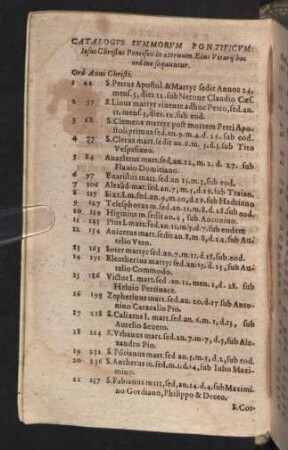 CATALOGVS SVMMORVM PONTIFICVM:
Iesus Christus Pontifex in æternum. Eius Vicarij hoc
ordine sequuntur.
Ord Anni Christi.
1 44 S. Petrus Apostol. & Martyr sedit Annos 24,
mens. 5, dies 12. sub Nerone Claudio Cæs.
2 57 S. Linus martyr viuente adhuc Petro, sed. an.
11. mens. 5, dies. 12. sub eod.
3 68 S. Clemens martyr post mortem Petri Apo-
stoli primus sed. an. 9. m. 4. d. 26. sub eod.
4 77 S. Cletus mart. sedit an. 6. m. 5. d. 3. sub Tito
Vespasiano.
5 84 Anacletus mart. sed. an. 12, m. 2. d. 27. sub
Flauio Domitiano.
6 97 Euaristus mart. sed an 13. m. 3, sub eod.
7 108 Alexād. mar. sed. an. 7, m. 5, d. 19, sub Traian.
8 117 Sixt. I. m. sed. an. 9, m. 10, d. 9, sub Hadriano
9 127 Telesphorus m. sed. an. 10, m. 8, d. 28. sub eod.
10 139 Higinius m. sedit an. 4, sub Antonino.
11 143 Pius I. mart. sed. an. 11, m. 5, d. 7. sub eodem
12 154 Anicetus mart. sedit an. 8, m. 8, d. 24. sub Au-
relio Vero.
13 163 Soter martyr sed. an. 7, m. 11, d. 18, sub eod.
14 171 Eleutherius martyr sed. an. 15, d. 13, sub Au-
relio Commodo.
15 186 Victor I. mart. sed. an. 12, men. 1, d. 28. sub
Heluio Pertinace.
16 198 Zepherinus mart. sed. an. 20. d. 17 sub Anto-
nino Caracallo Pio.
17 218 S. Calixtus I. mart. sed. an. 6. m. 1, d. 13, sub
Aurelio Seuero.
18 224 S. Vrbanus mart. sed. an. 7. m. 7, d. 5, sub Ale-
xandro Pio.
19 231 S. Pōtianus mart. sed. an. 5, m. 5, d. 2, sub eod.
20 236 S. Antherus m. sed. m. 1. d. 14, sub Iulio Maxi-
mino.
21 237 S. Fabianus mart. sed, an. 14. d. 4, sub Maximi-
no Gordiano, Philippo & Decco.
S. Cor-